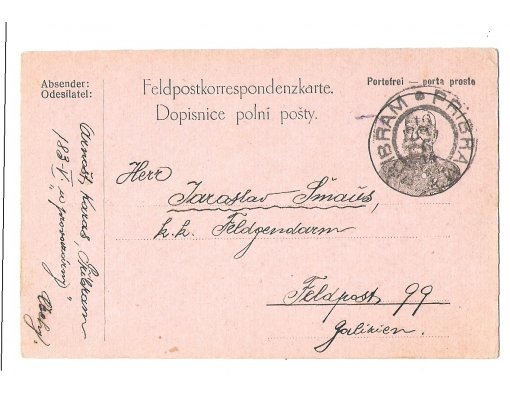 Absender:
Odesilatel:
Feldpostkorrespondenzkarte.
Dopisnice polní pošty.
Portofrei — porta prosto
PŘIBRAM ● PŘIBRAM
Herr
Jaroslav Šmaus,
k. k. Feldgendarm
Feldpost 99
Galizien.
Arnošt Karas, Příbram
183-V